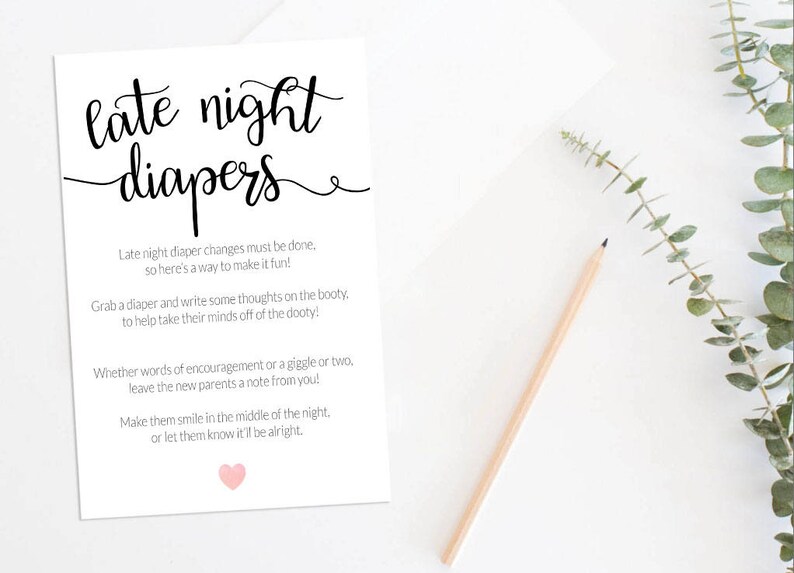 late night
diapers
Late night diaper changes must be done,
so here's a way to make it fun!
Grab a diaper and write some thoughts on the booty,
to help take their minds off of the dooty!
Whether words of encouragement or a giggle or two,
leave the new parents a note from you!
Make them smile in the middle of the night,
or let them know it'll be alright.